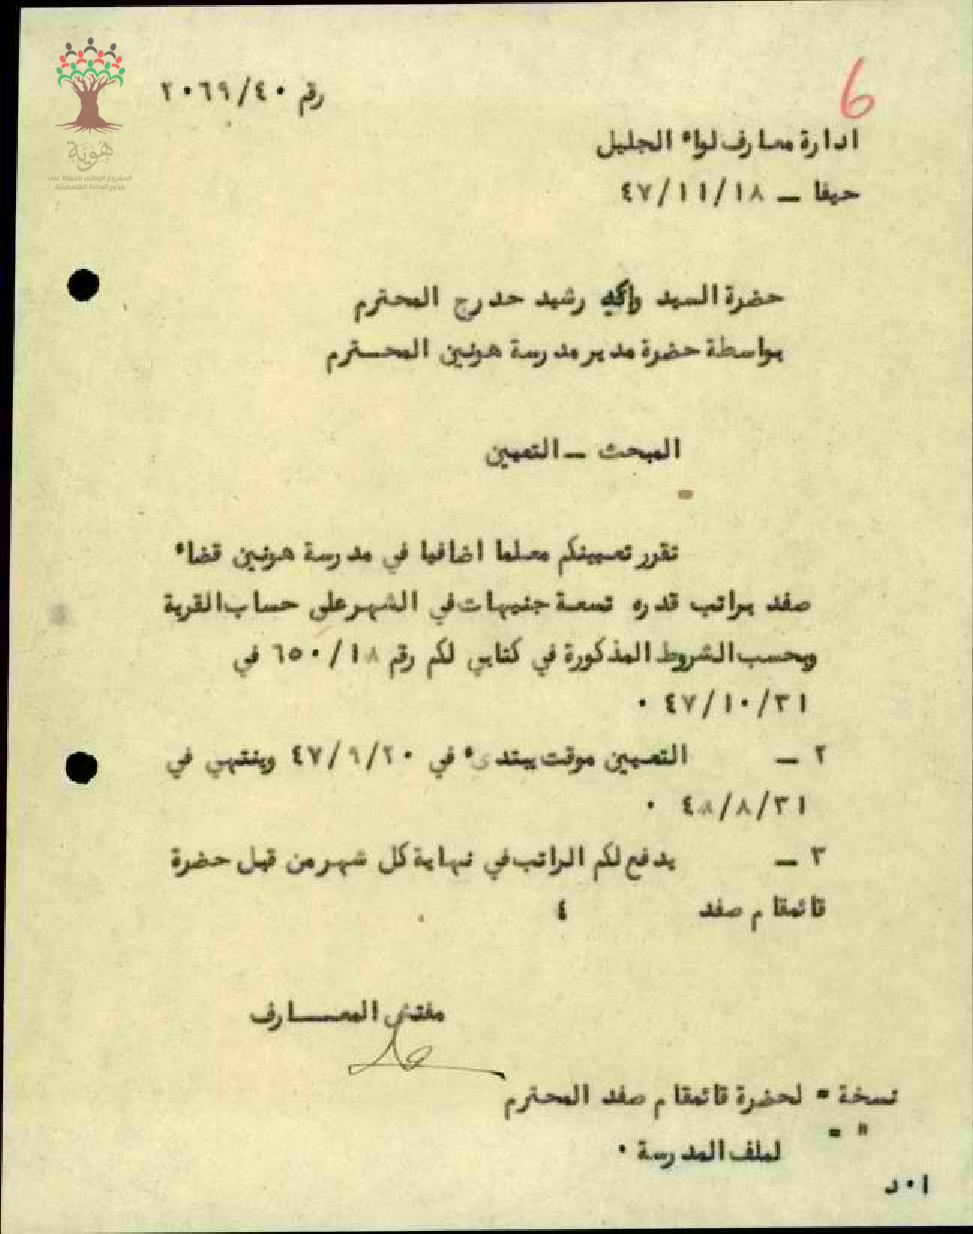 هوية
المشروع الوطني للحفاظ على
جذور العائلة الفلسطينية
رقم ٢٠٦٩/٤٠
6
ادارة معارف لواء الجليل
حيفا – ٤٧/١١/١٨
حضرة السيد رشيد حدرج المحترم
بواسطة حضرة مدير مدرسة هونين المحـترم
المبحث – التعيين
تقرر تعيينكم معلما اضافيا في مدرسة هونين قضاء
صفد براتب قدره تسعة جنيهات في الشهر على حساب القرية
وبحسب الشروط المذكورة في كتابي لكم رقم ٦٥٠/١٨ في
٤٧/١٠/٣١ ٠
٢ – التعيين موقت يبتدىء في ٤٧/٩/٢٠ وينتهي في
٤٨/٨/٣١ ٠
٣ – يدفع لكم الراتب في نهاية كل شهر من قبل حضرة
قائمقام صفد ٤
مفتش المعـــارف
نسخة = لحضرة قائمقام صفد المحترم
" = لملف المدرسة ٠
ا٠د